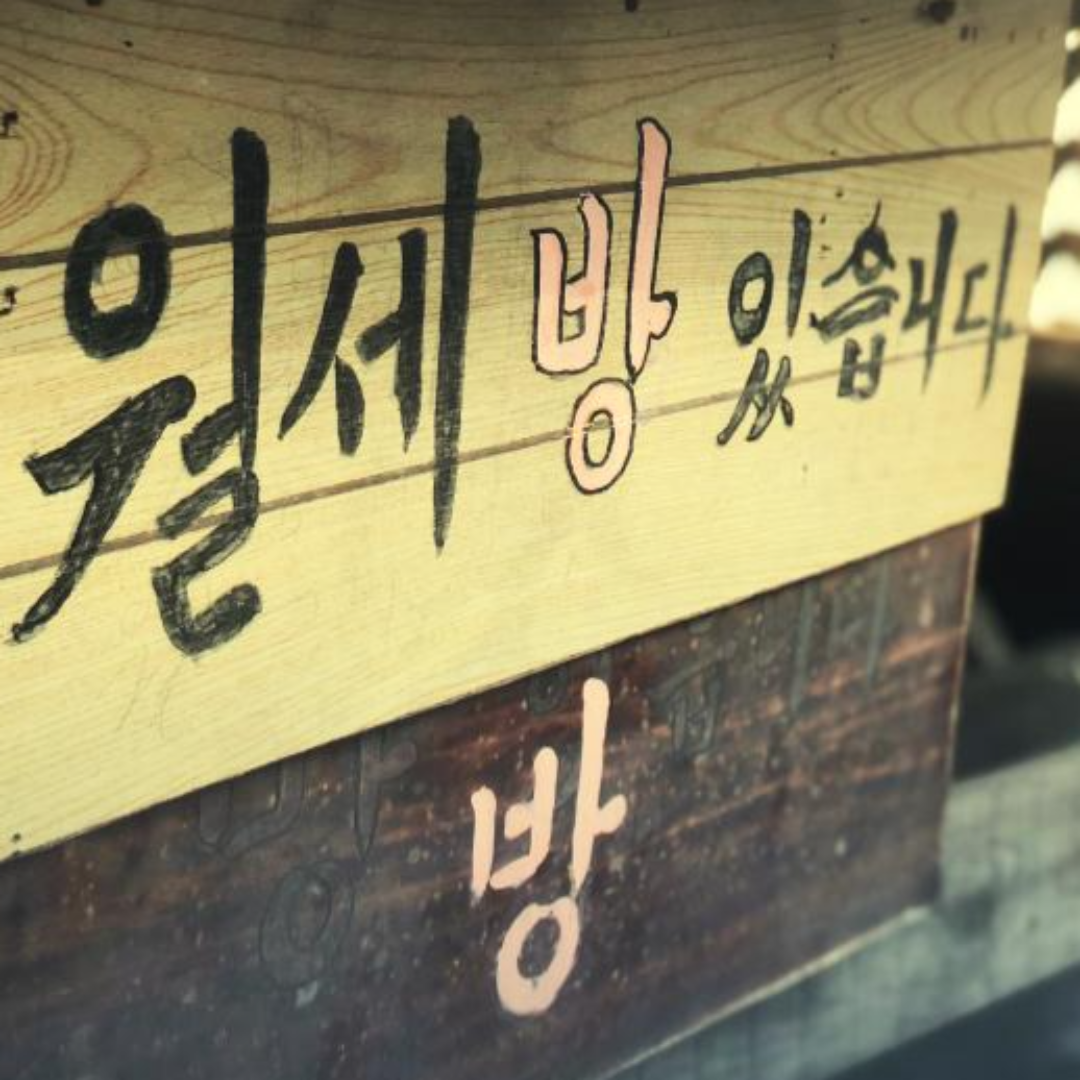 월세 방 있습니다
방